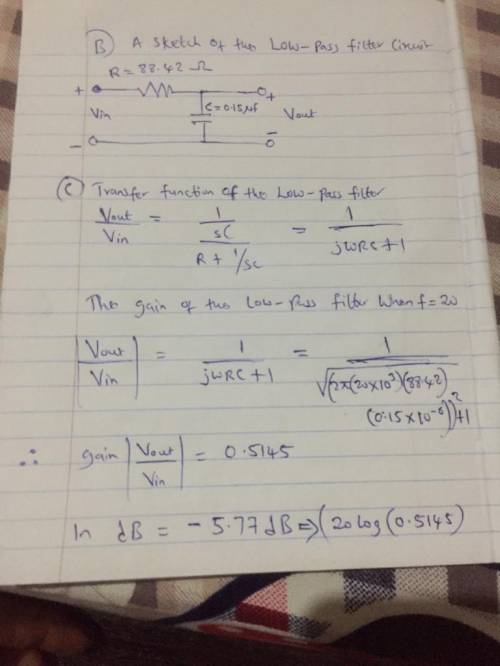 B) A sketch of the Low-Pass filter Circuit
R = 88.42 Ω
+ +
Vin C=0.15µf Vout
- -
C) Transfer function of the Low-pass filter
Vout/Vin = (1/sC)/(R + 1/sC) = 1/(jWRC+1)
The gain of the Low-Pass filter When f=20
|Vout/Vin| = 1/(jWRC+1) = 1/√(2π(20×10³)(88.42)
(0.15×10⁻⁶))²+1
∴ gain |Vout/Vin| = 0.5145
In dB = -5.77dB => (20log(0.5145)